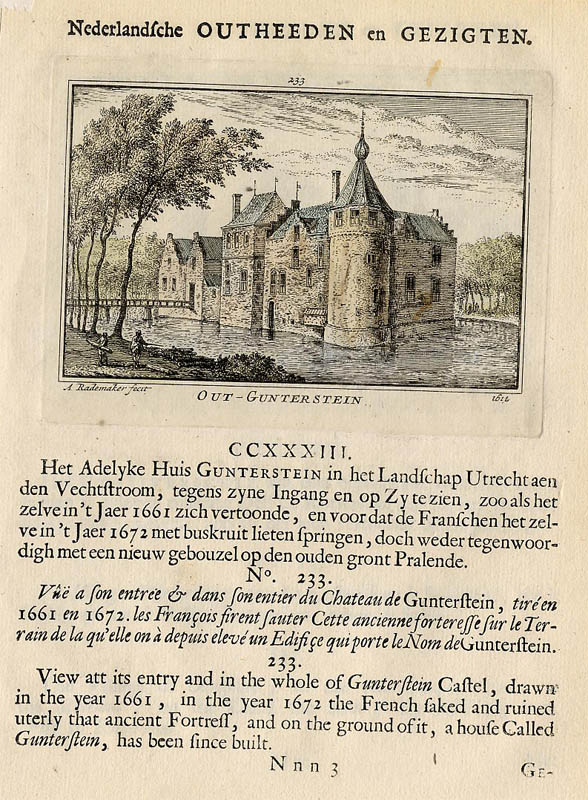 Nederlandſche OUTHEEDEN en GEZIGTEN.
233
A Rademaker fecit
OUT-GUNTERSTEIN
CCXXXIII.
Het Adelyke Huis GUNTERSTEIN in het Landſchap Utrecht aen
den Vechtſtroom, tegens zyne Ingang en op Zy te zien, zoo als het
zelve in 't Jaer 1661 zich vertoonde, en voor dat de Franſchen het zel-
ve in 't Jaer 1672 met buskruit lieten ſpringen, doch weder tegenwoor-
digh met een nieuw gebouzel op den ouden gront Pralende.
No. 233.
Vûë a ſon entrée & dans ſon entier du Chateau de Gunterſtein, tiré en
1661 en 1672. les François firent ſauter Cette ancienne fortereſſe ſur le Ter-
rain de la qu'elle on à depuis elevé un Edifiçe qui porte le Nom de Gunterſtein.
233.
View att its entry and in the whole of Gunterſtein Caſtel, drawn
in the year 1661, in the year 1672 the French ſaked and ruined
uterly that ancient Fortreſſ, and on the ground of it, a houſe Called
Gunterſtein, has been ſince built.
Nnn 3
GE-